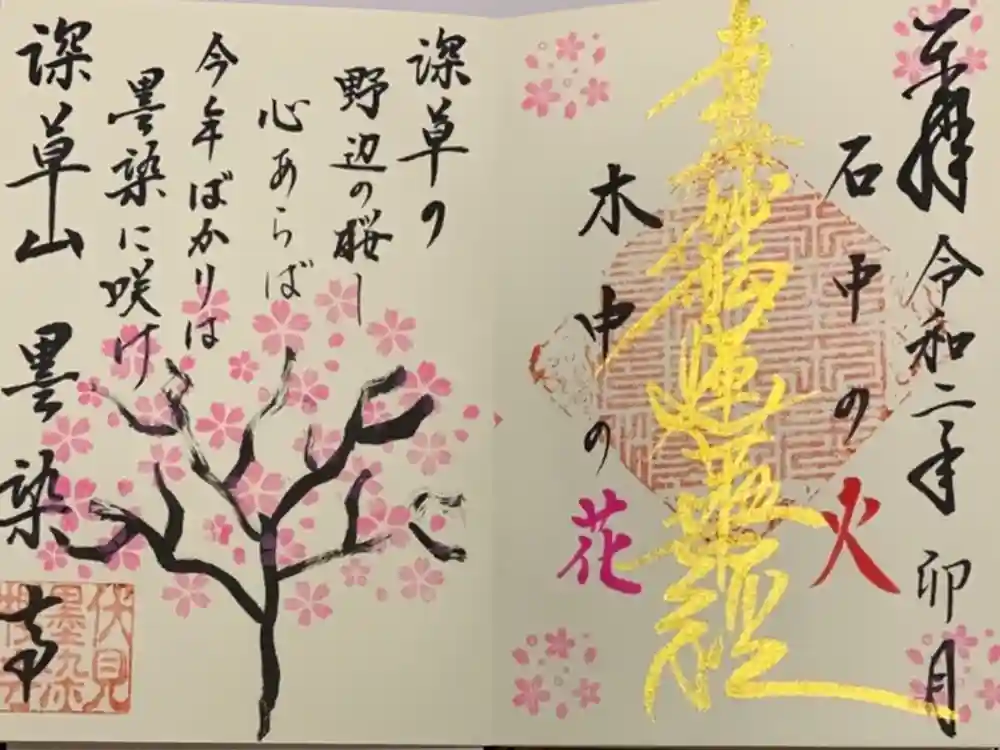 奉拝 令和二年 卯月
石中の火
南無妙法蓮華経
木中の花
深草の
野辺の桜し
心あらば
今年ばかりは
墨染に咲け
深草山 墨染寺
伏見
墨染